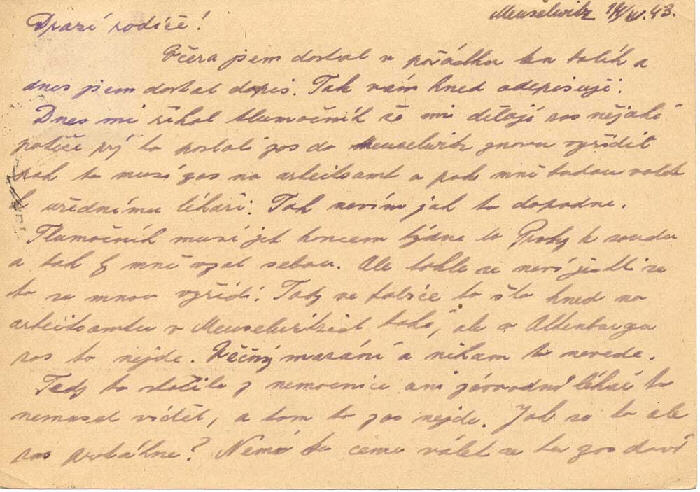 Meuselwitz 14/IV.43.
Drazí rodiče!
Včera jsem dostal v pořádku ten balík a
dnes jsem dostal dopis. Tak vám hned odepisuji.
Dnes mi říkal tlumočník že mi dělají zas nějaké
potíže prý to poslali zas do Meuselwitz znovu vyřídit
pak to musí zas na arbeitsamt a pak mně budou volat
k úřednímu lékaři. Tak nevím jak to dopadne.
Tlumočník musí jet koncem týdne do Prahy k soudu
a tak by mně vzal sebou. Ale tohle se neví jestli se
to se mnou vyřídí. Tady ve fabrice to šlo hned na
arbeitsamtu v Meuselwitzích také, ale v Altenburgu
zas to nejde. Věčný mazání a nikam to nevede.
Tady to stačilo z nemocnice ani závodní lékař to
nemusel vidět, a tam to zas nejde. Jak se to ale
zas protáhne? Nemá to cenu válet se tu zas